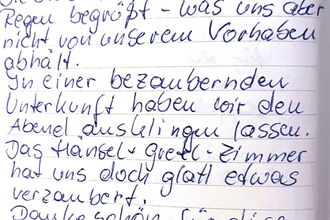 Regen begrüßt - was uns aber
nicht von unserem Vorhaben
abhält.
In einer bezaubernden
Unterkunft haben wir den
Abend ausklingen lassen.
Das Hänsel + Gretel - Zimmer
hat uns doch glatt etwas
verzaubert.
Dankeschön für diese